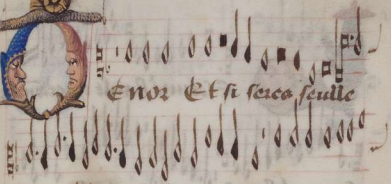 Tenor Et si seres seulle